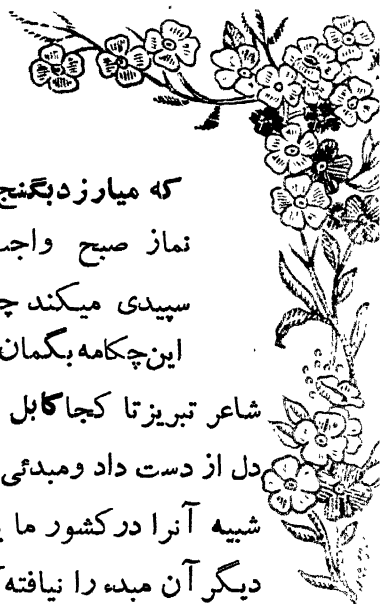 که میارزد بگنج
نماز صبح واجب
سپیدی میکند چ
این چکامه بگمان
شاعر تبریز تا کجا کابل
دل از دست داد ومبدئی
شبیه آنرا در کشور ما
دیگر آن مبدء را نیافته